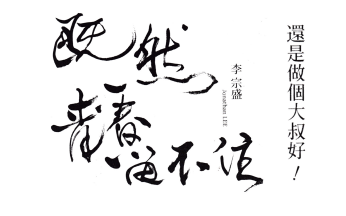 還是做個大叔好！
李宗盛
Jonathan LEE
既然
青春
留不住